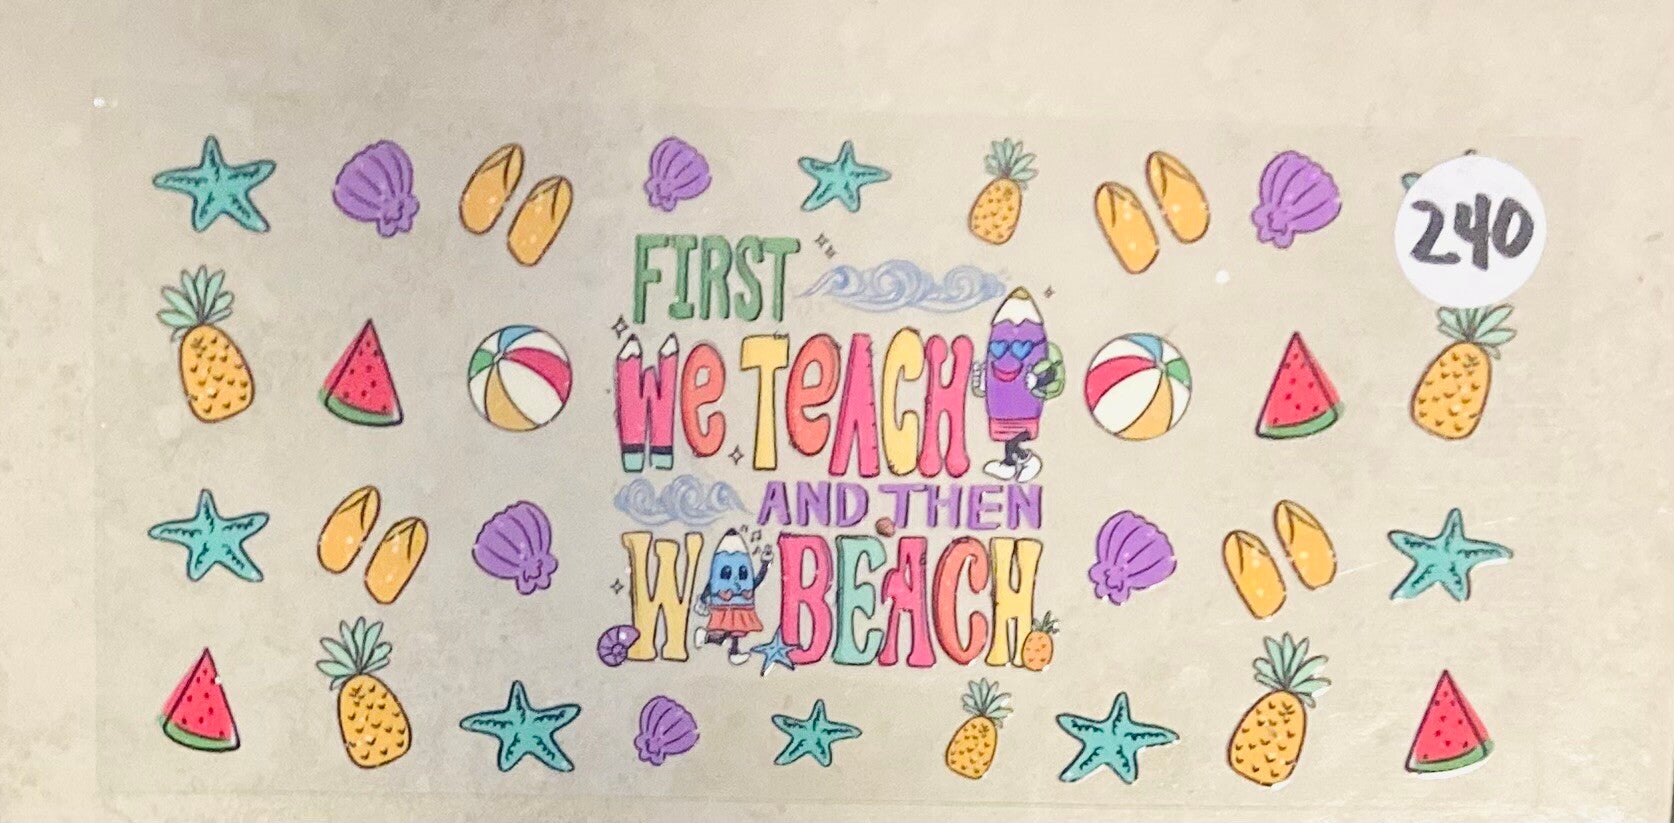 240
FIRST
We TeACH
AND THEN
W BEACH